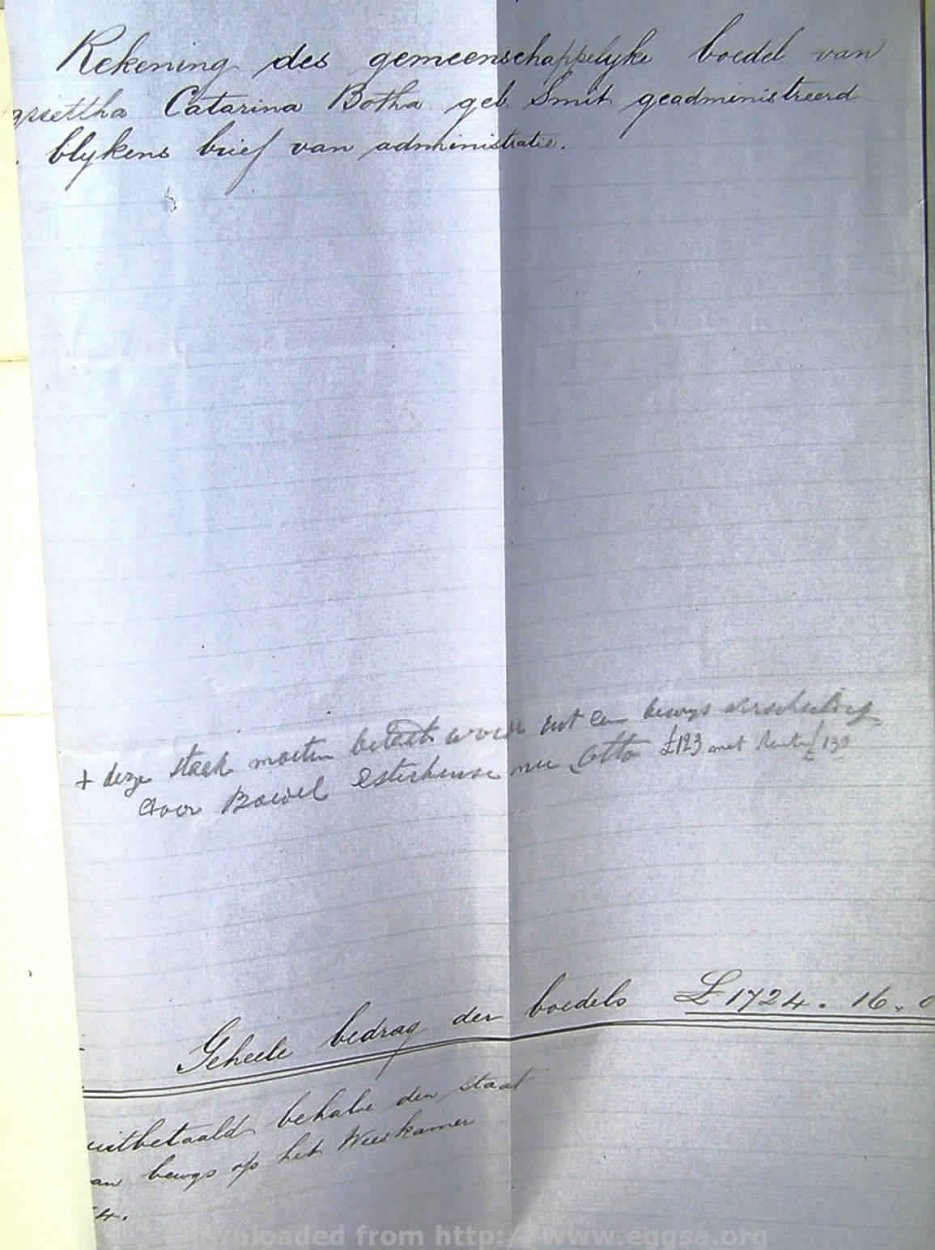 Rekening des gemeenschappelyke boedel van
Catarina Botha geb Smit geadministreerd
blykens brief van administratie.
+ deze moeten met een bewys
Door Boedel Esterhuise nu Otto £123 met Rente £130
Geheele bedrag der boedels £1724. 16. 0
uitbetaald behalve den staat
an bewys op het Weeskamer
4.
Downloaded from http://www.eggsa.org